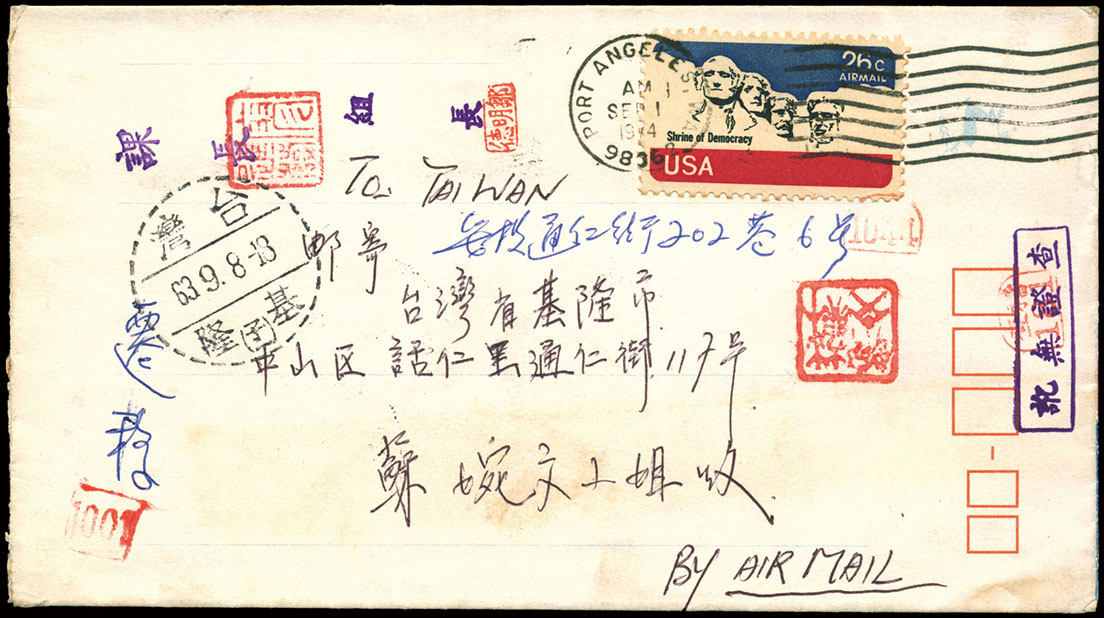 PORT ANGELES WA
AM
SEP 1
1974
98362
26c
AIRMAIL
Shrine of Democracy
USA
課長
組長
To. TAIWAN
邮寄
安投通仁街202巷6号
台灣省基隆市
中山区 話仁里通仁街117号
蘇婉文小姐收
BY AIR MAIL
台灣
63.9.8-13
基隆
遷移
1044
1001
查證無訛